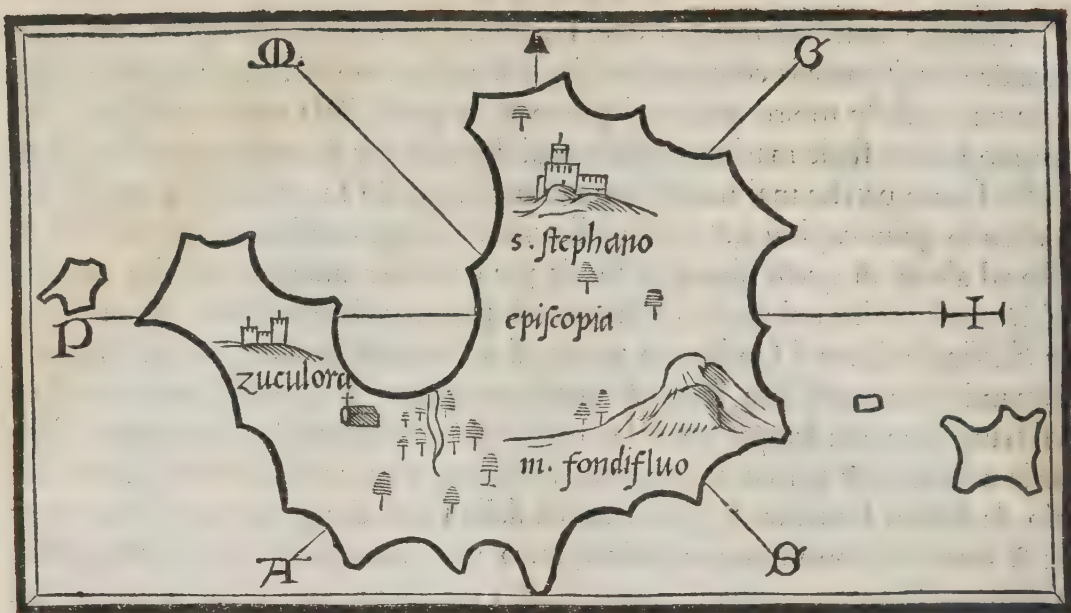 M
G
s. ſtephano
epiſcopia
P
zuculora
m. fondifluo
A
S